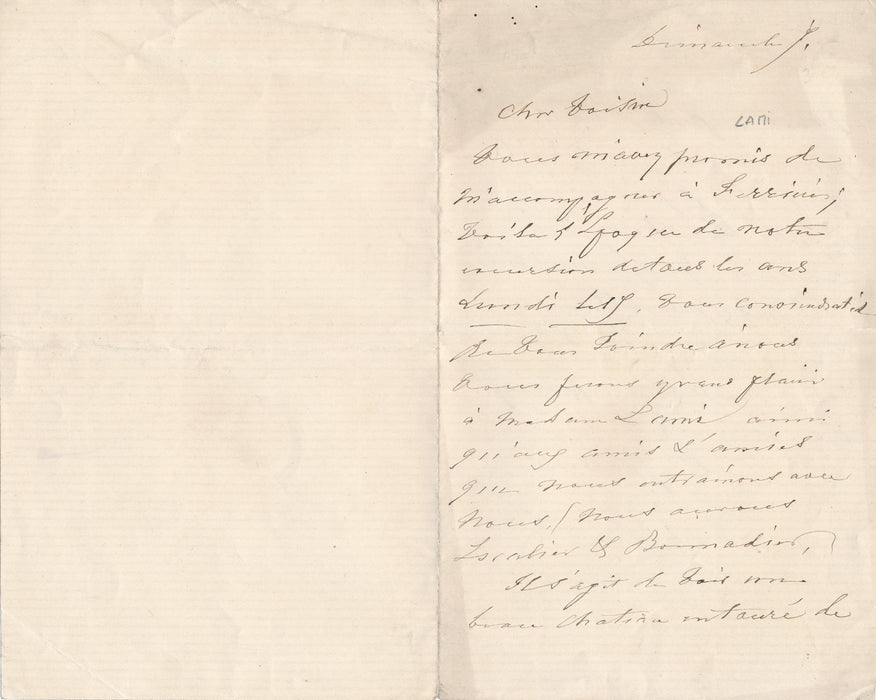 Dimanche 7.
Cher Voisin
LAMI
Vous m'avez promis de
m'accompagner à Ferrières,
Voila l'Epoque de notre
excursion de tous les ans
Lundi
vous
De vous Joindre à nous
vous ferons grand plaisir
à Madame Lami ainsi
qu'aux amis & amies
que nous entrainons avec
nous, (nous aurons
Escalier & Bonnadier,)
Il s'agit de Voir un
beau Chateau entouré de